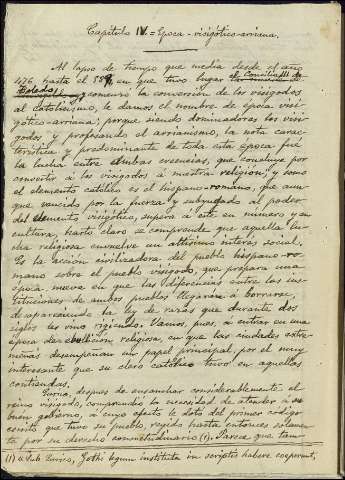 Capítulo IV. = Epoca - visigótico-arriana.
Al lapso de tiempo que media desde el año
476 hasta el 587, en que tuvo lugar el Concilio III de
Toledo, y comenzó la conversión de los visigodos
al catolicismo, le damos el nombre de época visi-
gótico-arriana; porque siendo dominadores los visi-
godos y profesando el arrianismo, la nota carac-
terística y predominante de toda esta época fué
la lucha entre ambas creencias, que concluye por
convertir á los visigodos á nuestra religion; y como
el elemento católico es el hispano-romano, que aun-
que vencido por la fuerza y subyugado al poder
del elemento visigótico, supera á este en número y en
cultura, harto claro se comprende que aquella lu-
cha religiosa envuelve un altísimo interés social.
Es la acción civilizadora del pueblo hispano-ro-
mano sobre el pueblo visigodo, que prepara una
época nueva en que las diferencias entre las ins-
tituciones de ambos pueblos llegaran á borrarse,
desapareciendo la ley de razas que durante dos
siglos les vino rigiendo. Vamos, pues, á entrar en una
época de ebullición religiosa, en que las ciudades extre-
meñas desempeñan un papel principal, por el muy
interesante que su clero católico tuvo en aquellas
contiendas.
Eurico, después de ensanchar considerablemente el
reino visigodo, comprendió la necesidad de atender á su
buen gobierno, á cuyo efecto le dotó del primer código
escrito que tuvo su pueblo, regido hasta entonces solamen-
te por su derecho consuetudinario (1). Parece que tam-
(1) Sub Eurico, Gothi legum instituta in scriptis habere coeperunt,